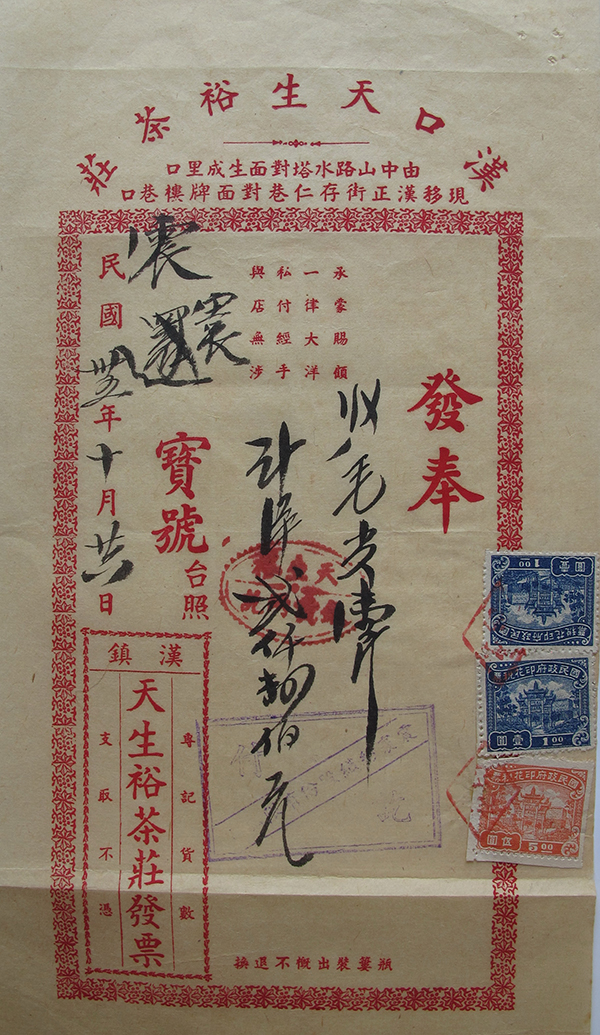 漢口天生裕茶莊
由中山路水塔對面生成里口
現移漢正街存仁巷對面牌樓巷口
發奉
承蒙賜顧
一律大洋
私付經手
與店無涉
收毛尖
計洋貳仟捌佰元
寶號台照
民國卅五年十月廿六日
漢鎮
專記貨數
天生裕茶莊發票
支取不憑
瓶簍裝出概不退換
國民政府印花稅票
壹圓
1.00
國民政府印花稅票
壹圓
1.00
國民政府印花稅票
伍圓
5.00